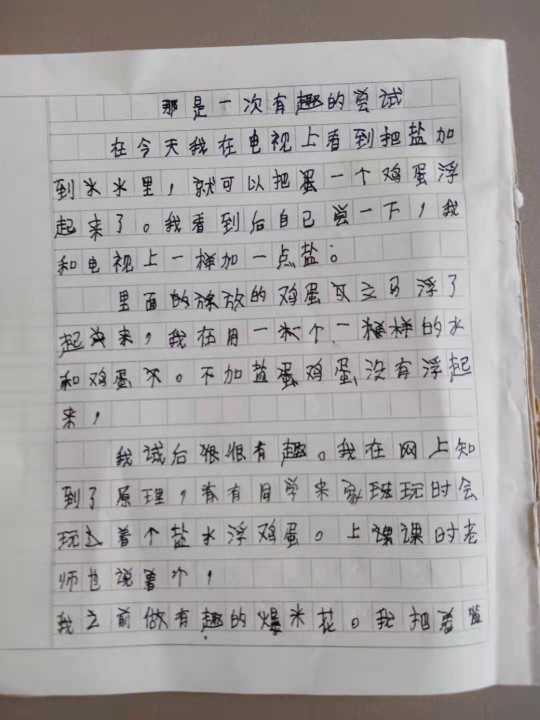 那是一次有趣的尝试
在今天我在电视上看到把盐加
到水水里，就可以把蛋一个鸡蛋浮
起来了。我看到后自己尝一下，我
和电视上一样加一点盐。
里面的放的鸡蛋立马浮了
起来，我在用一个一样的水
和鸡蛋不。不加盐蛋鸡蛋没有浮起
来，
我试后很很有趣。我在网上知
到了原理，有有同学来家玩时会
玩着个盐水浮鸡蛋。上课课时老
师也说着个，
我之前做有趣的爆米花。我把着盐